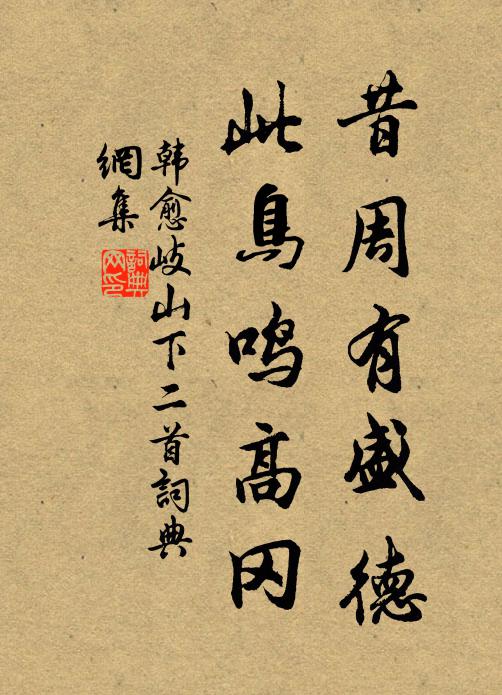 昔周有盛德
此鳥鳴高冈
韩愈岐山下二首詞典
網集
詞典
网印